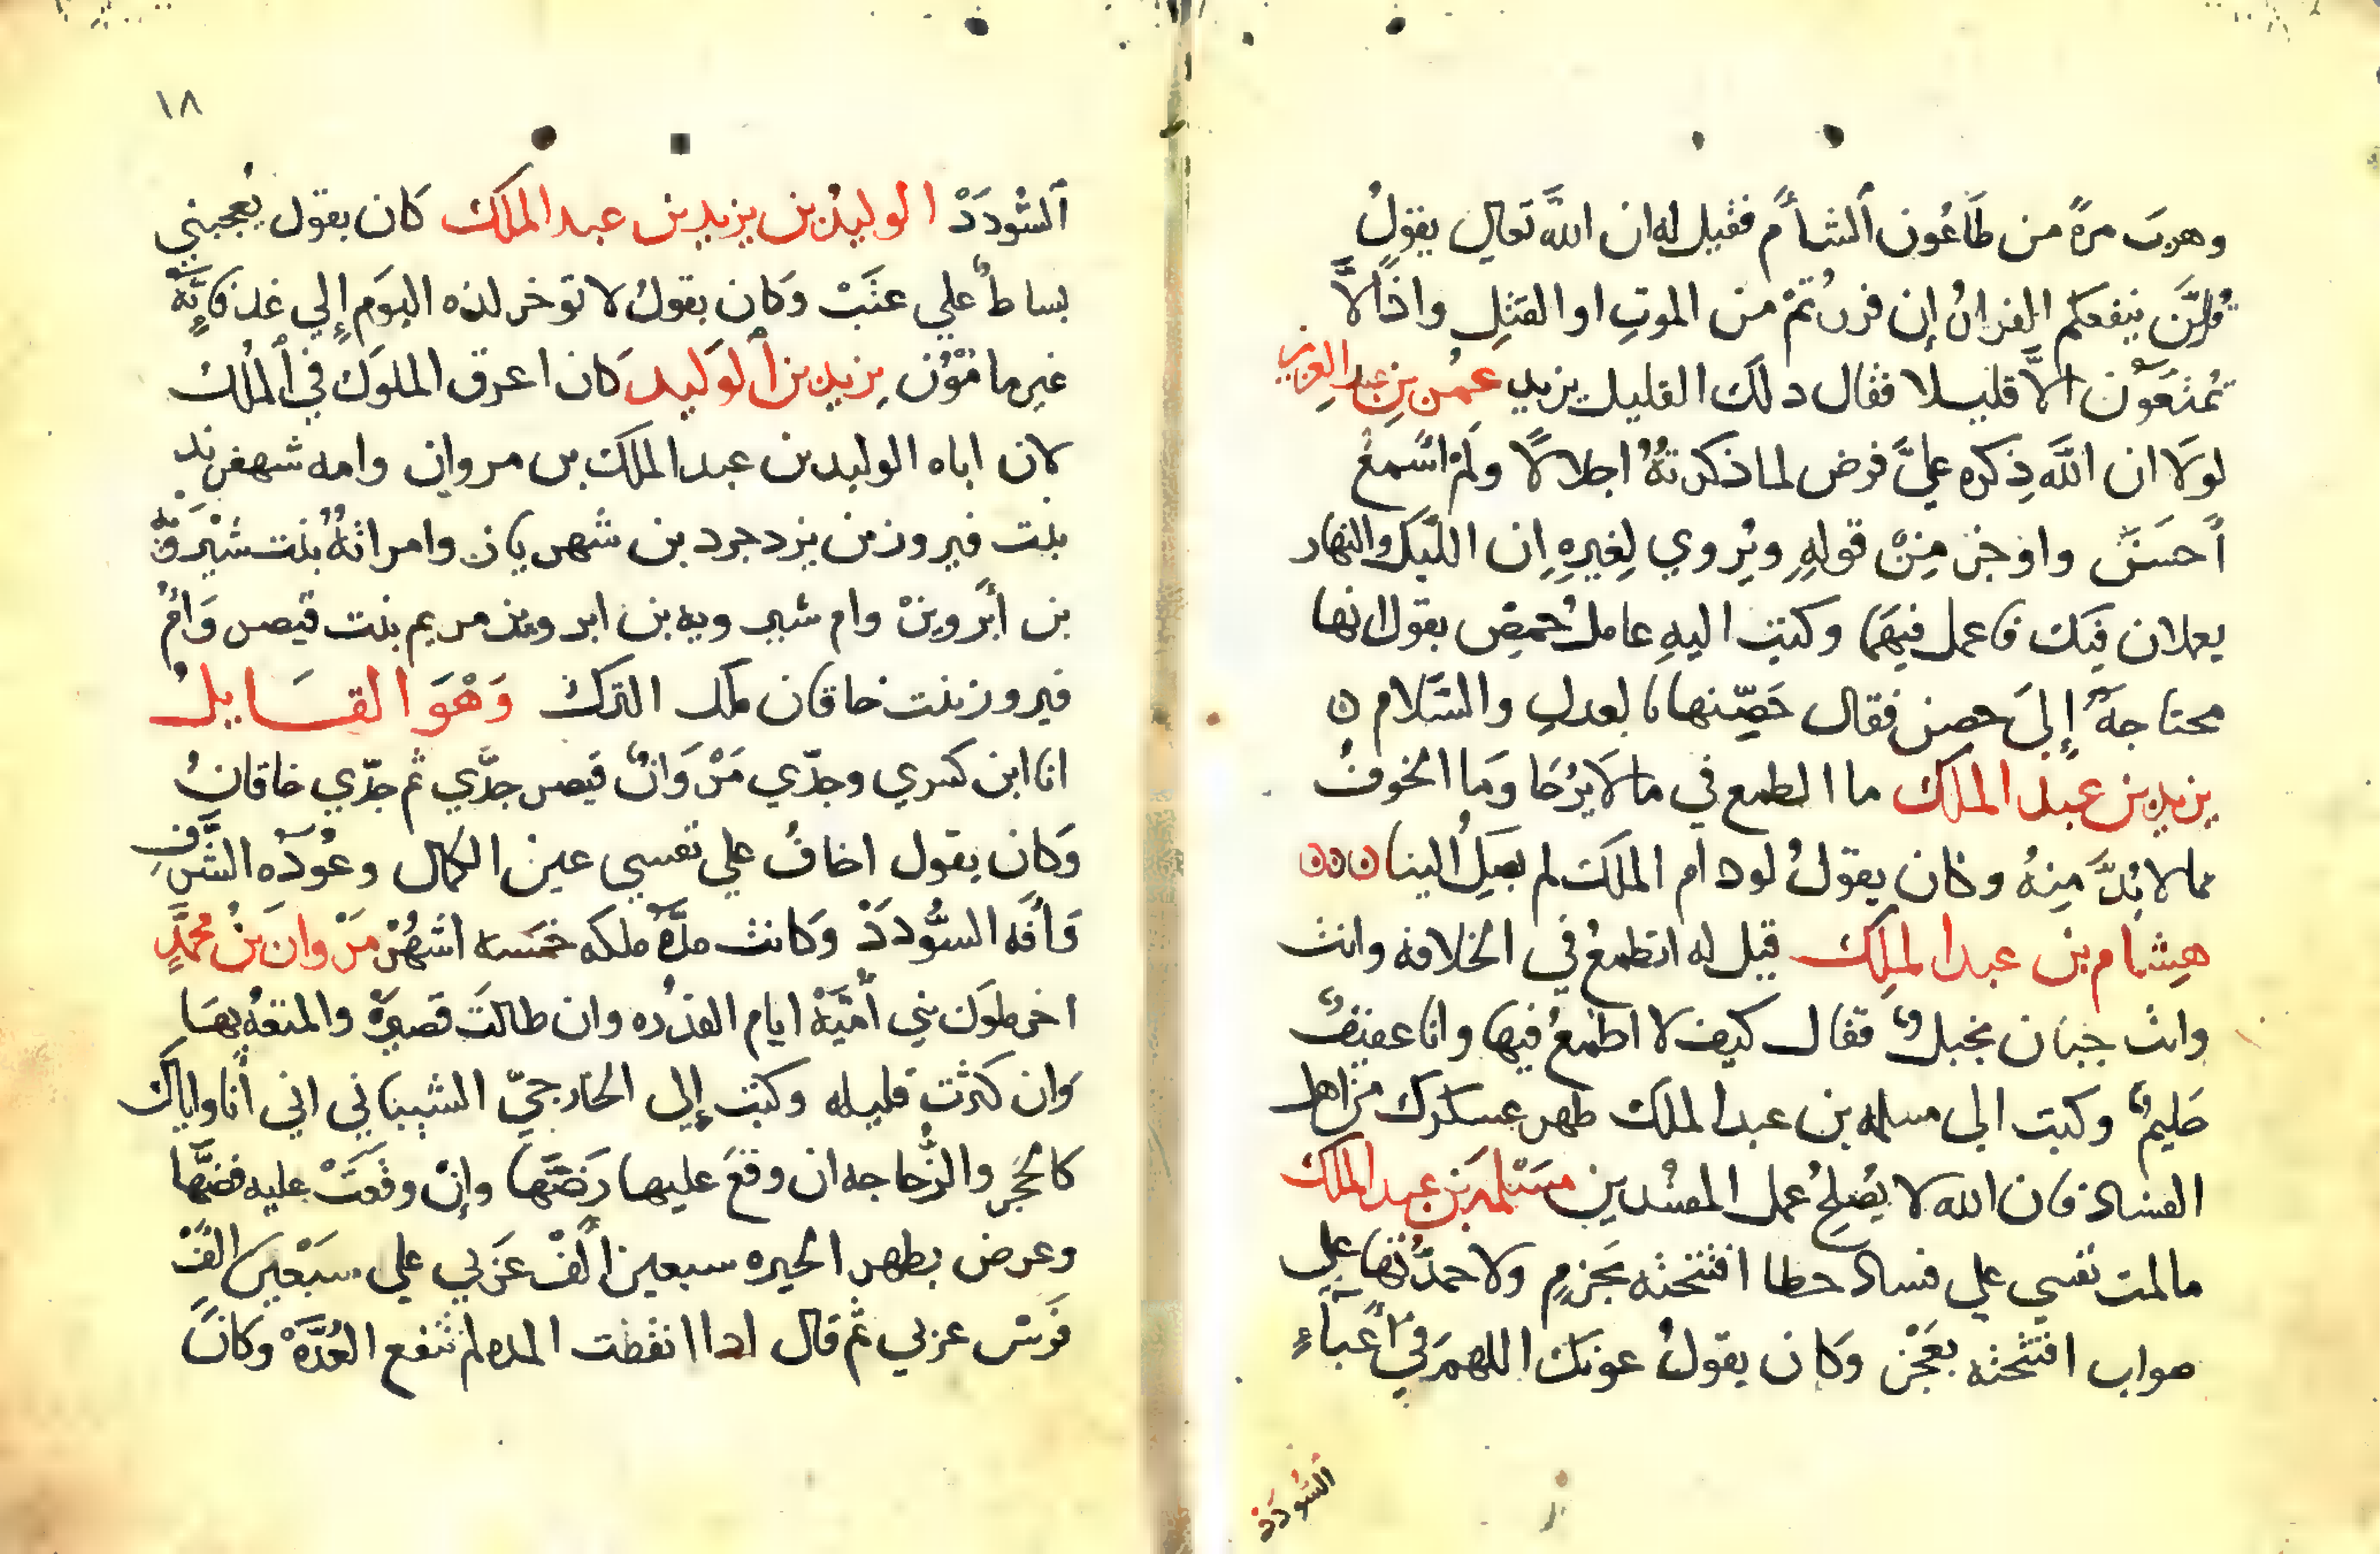 وهرب مرةً من طاعُون الشام فقيل له ان الله تعالي يقولُ
قل لَّن ينفعكم الفرارُ إن فررتمْ من الموتِ او القتلِ واذًا لاَّ
تمتعون الاَّ قليلا فقال ذلك القليل يزيد عمر بن عبد العزيز
لولا ان الله ذِكره عليَّ فرض لما ذكرتهُ اجلالاً ولم اسمع
أحسنَ واوجز مِنْ قولهِ ويُروي لِغيرهِ إن الليل والنهار
يعملان فيك فاعمل فيهما وكتب اليهِ عامل حمص يقول انها
محتاجةٌ إلىَ حصن فقال حَصِّنها بالعدلِ والسَّلام ٥
يزيد بن عبد الملك ما الطمع في ما لا يُرجا وَما الخوف
مما لا بُدَّ مِنهُ وكان يقولُ لو دام الملك لم يصِلُ الينا ٥٥٥
هِشام بن عبد الملِك قيل له اتطمعُ في الخلافه وانت
وانت جبان بخيلٌ فقال كيف لا اطمعُ فيها وانا عفيفٌ
حليمٌ وكتب الى مسلمه بن عبد الملك طهر عسكرك من اهل
الفساد فان الله لا يُصلِحُ عمل المفسدين مسلمه بن عبد الملك
مالمت نفسي علي فساد حطا افتتحته بحَزمٍ ولا حمدتُها علي
صواب افتتحته بعَجْز وكان يقولُ عونك اللهم في أعباءِ
السُودَدْ
١٨
السُّودَدْ الوليدُ بن يزيد بن عبد الملك كان يقول يُعجبني
بساطٌ علي عتَبْ وكان يقولُ لا توخر لذه اليَوم إلي غد فإنَّهُ
غير مامُوْن يزيد بن الوَليد كان اعرق الملوك في المُلك
لان اباه الوليد بن عبد الملك بن مروان وامه شهفرند
بنت فيروز بن يزدجرد بن شهريان وامراتهُ بنت شيْرَوَيْهْ
بن أبَروينْ وام شيرويه بن ابرويز مريم بنت قيصر وَامُ
فيروز بنت خاقان ملك الترك وَهْوَ القَائلُ
انا ابن كسري وجدّي مَرْوَانٌ قيصر جدِّي ثم جدّي خاقانُ
وكان يقول اخافُ علي نفسي عين الكمال وعُوذه الشرفِ
وَأفه السُّودَدْ وكانت مدَّةُ ملكه خمسه اشهُرْ مَرْوان بنُ محمَّدٍ
اخر ملوك بني أُمَيَّهْ ايام القدره وان طالتَ قصيرةٌ والمتعهُ بهَا
وَان كثرت قليله وكتب إلى الخارجيّ الشيباني اني أنا واياك
كالحَجر والزُّجاجه ان وقعَ عليها رَضَّها وإنْ وقَعَتْ عليه فضَّها
وعرض بظهر الحيره سبعين ألفْ عَرَبي علي سَبْعينَ الفْ
فَرَسْ عربي ثم قال اداا نقضت المده لم تنفع العُدَّهْ وكان